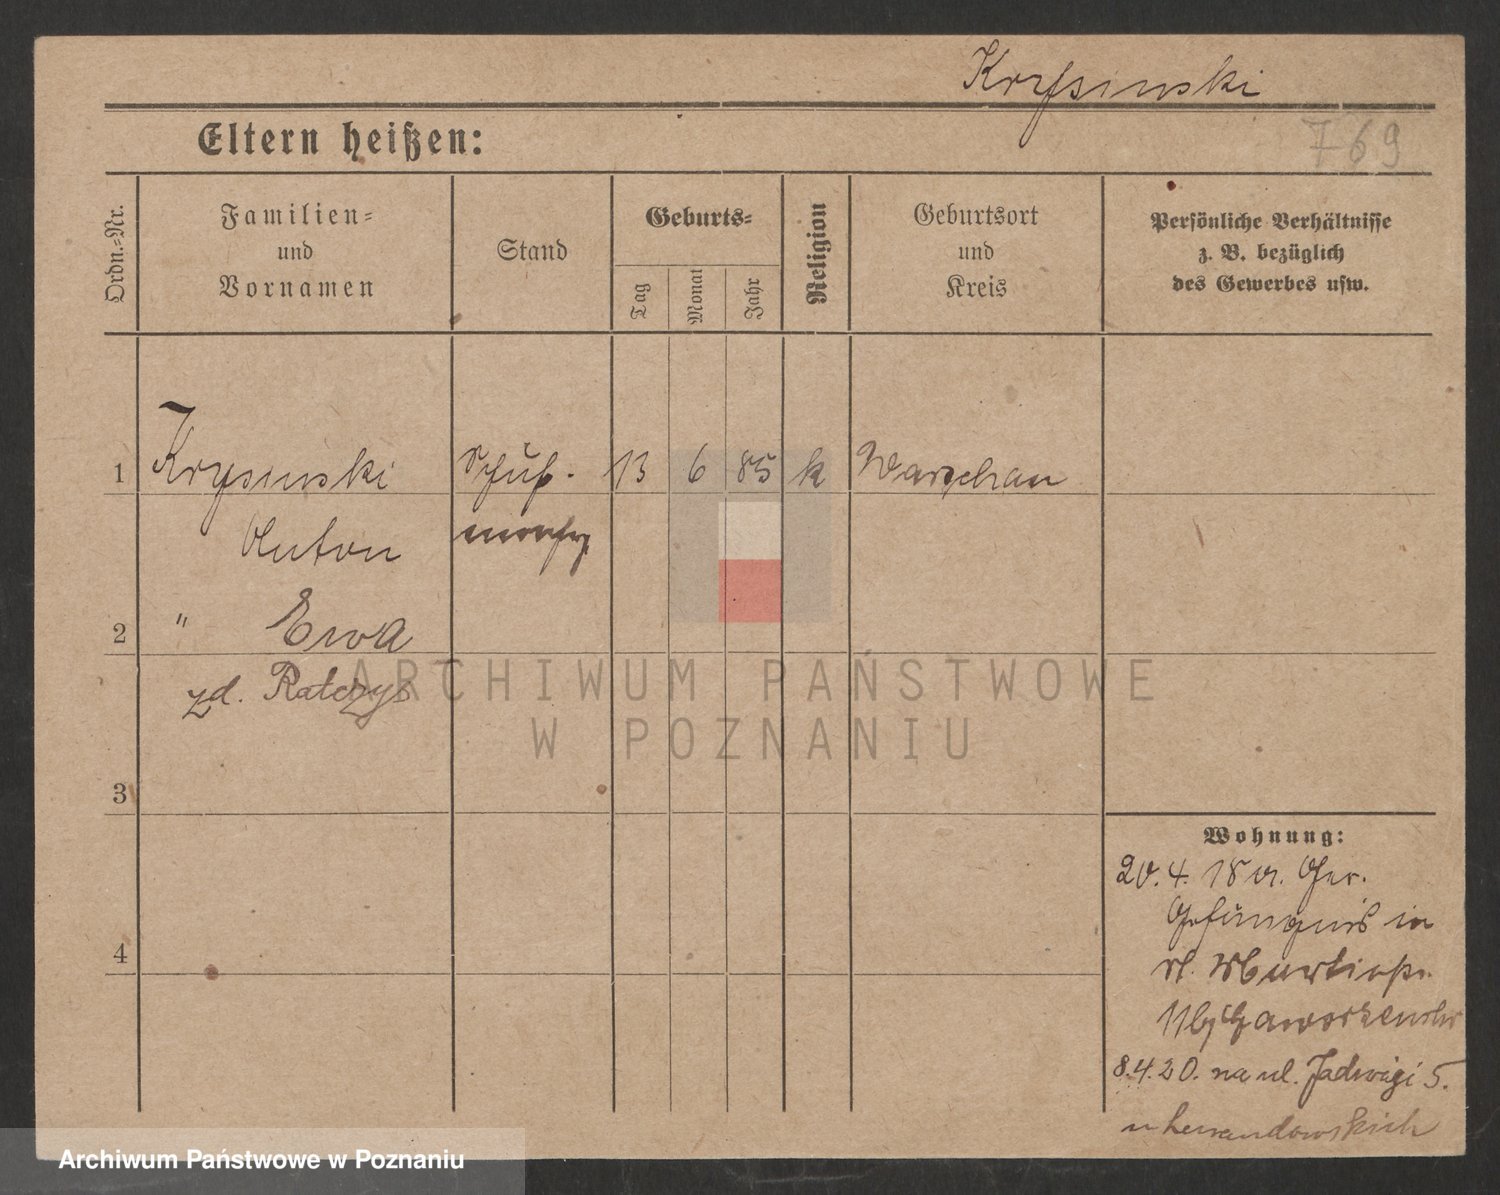 Krysinski
Eltern heißen:
769
Ordn.-Nr.
Familien-
und
Vornamen
Stand
Geburts-
Tag
Monat
Jahr
Religion
Geburtsort
und
Kreis
Persönliche Verhältnisse
z. B. bezüglich
des Gewerbes usw.
1 Krysinski Schuh- 13 6 85 k Warschau
Anton
2 " Ewa
zd. Ratczys
ARCHIWUM PAŃSTWOWE
W POZNANIU
3
Wohnung:
20.4.18 Ger.
Gefängnis in
4
8.4.20. na ul. Jadwigi 5.
u Lewandowskich
Archiwum Państwowe w Poznaniu